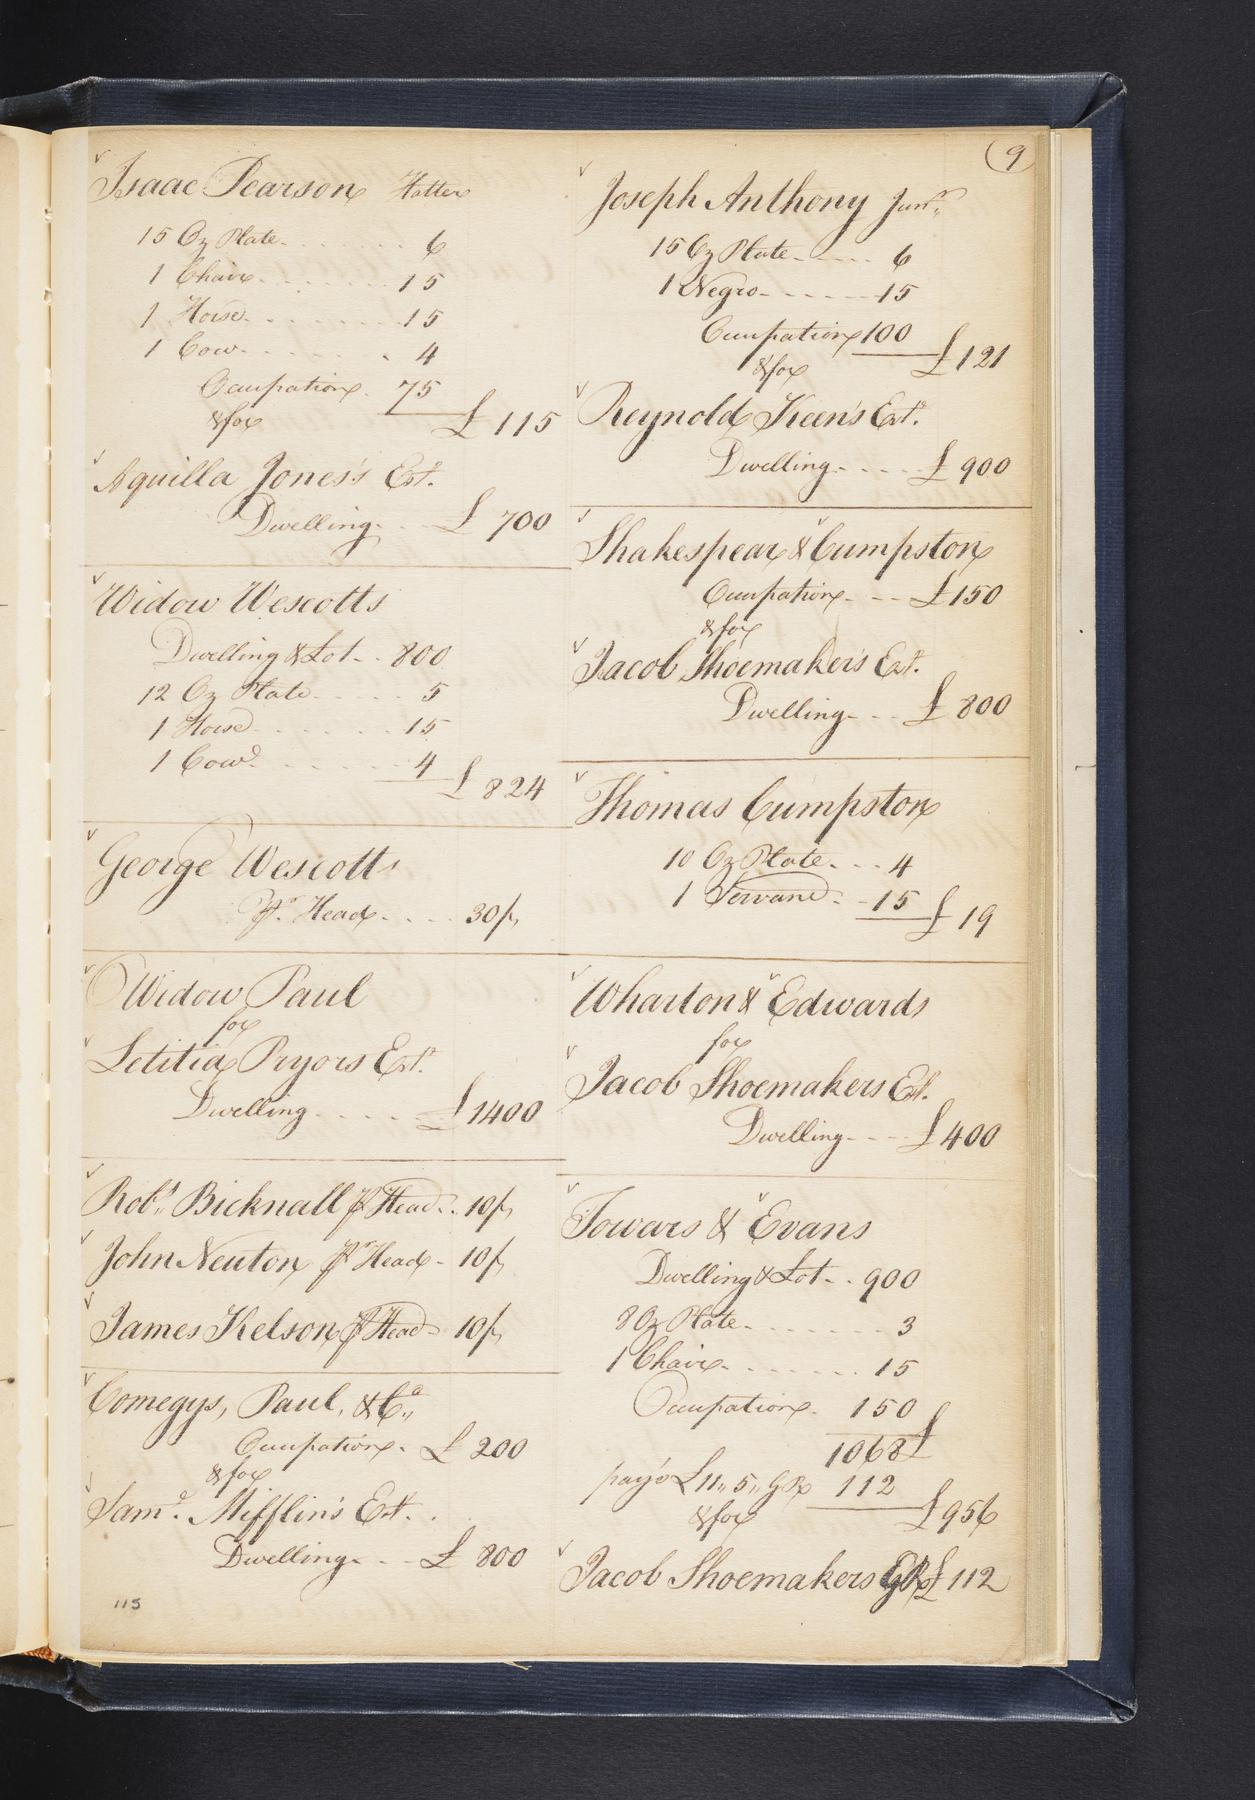 (9
Isaac Pearson Hatter
15 Oz Plate 6
1 Chair 15
1 Horse 15
1 Cow 4
Occupation 75
&for £ 115
Aquilla Jones's Est.
Dwelling £ 700
Widow Wescotts
Dwelling & Lot 800
12 Oz Plate 5
1 Horse 15
1 Cow 4
£ 824
George Wescotts
Pr. Head 30/
Widow Paul
for
Letitia Pryors Est.
Dwelling £1400
Robt. Bicknall Pr Head 10/
John Neuton Pr Head 10/
James Kelson Pr Head 10/
Comegys, Paul, & Co
Occupation £ 200
&for
Saml. Mifflin's Est.
Dwelling £ 800
115
Joseph Anthony Junr.
15 Oz Plate 6
1 Negro 15
Occupation 100
£121
&for
Reynold Keen's Est.
Dwelling £ 900
Shakespear & Cumpston
Occupation £150
&for
Jacob Shoemakers Est.
Dwelling £ 800
Thomas Cumpston
10 Oz Plate 4
1 Servant 15 £ 19
Wharton & Edwards
for
Jacob Shoemakers Est.
Dwelling £400
Towars & Evans
Dwelling & Lot 900
8 Oz Plate 3
1 Chair 15
Occupation 150
1068 £
pays £11,,5,, GRt 112
&for £956
Jacob Shoemakers GRt £112